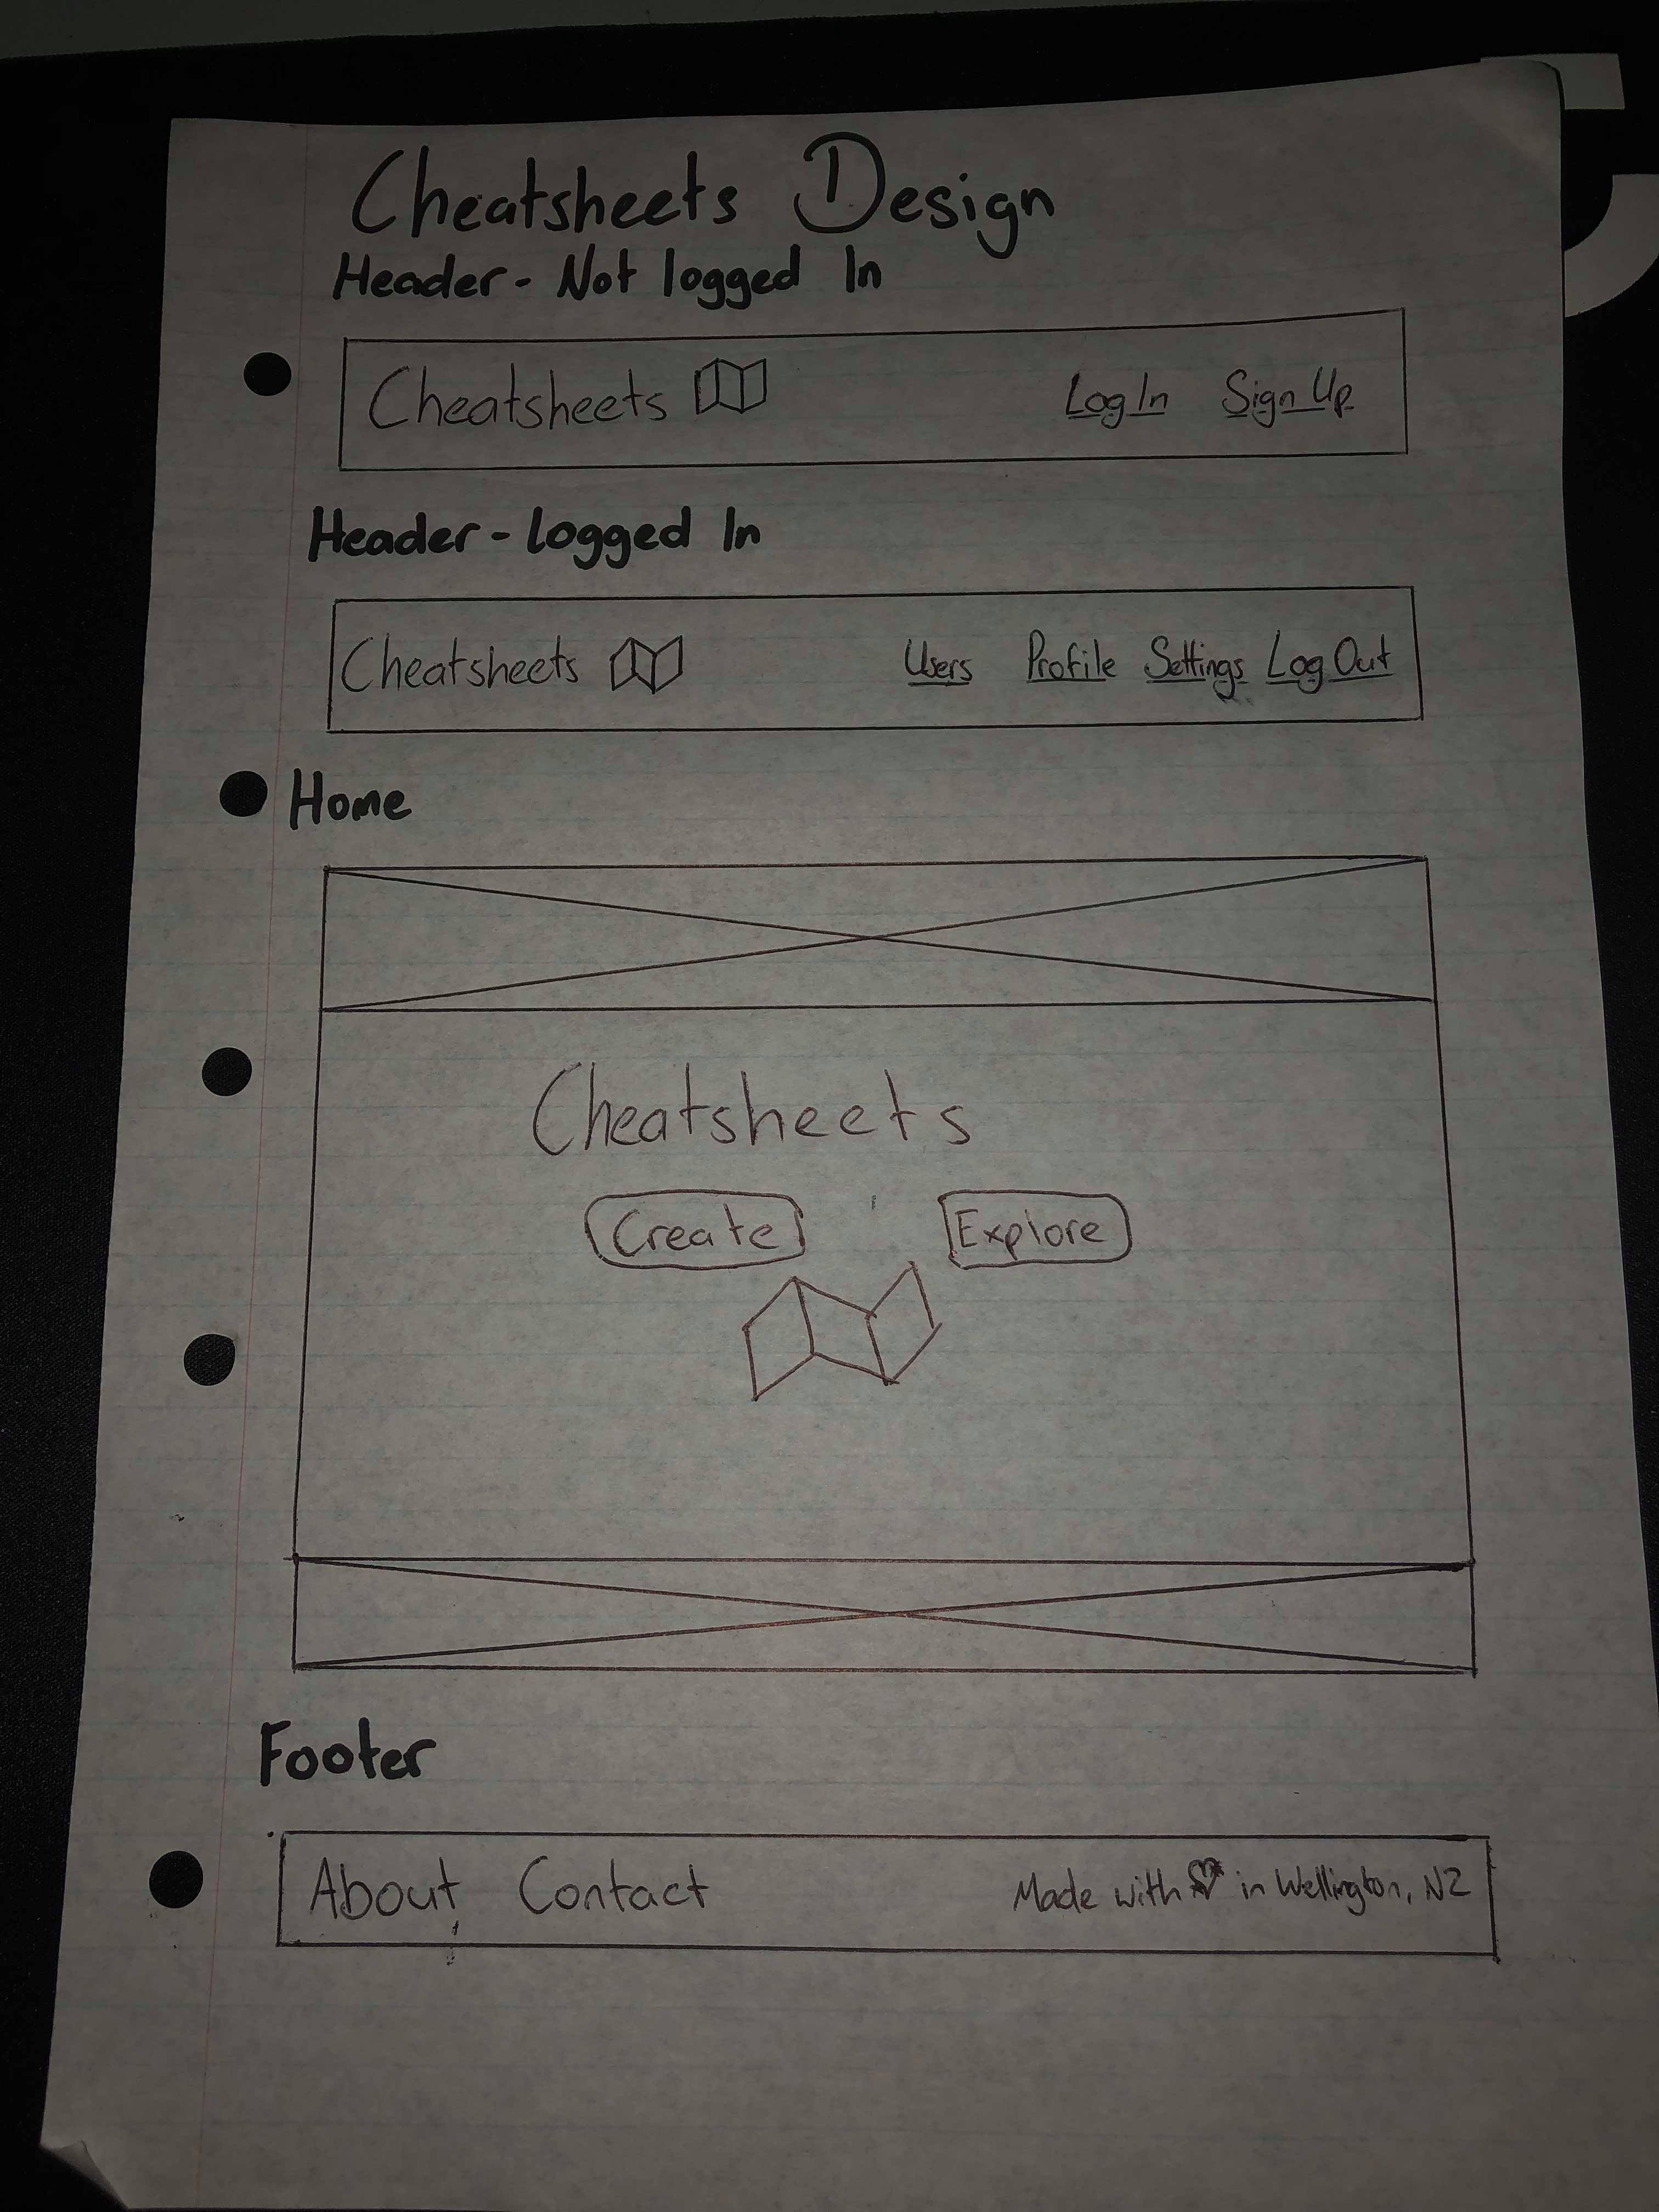 Cheatsheets Design
Header - Not logged In
Cheatsheets Log In Sign Up
Header - logged In
Cheatsheets Users Profile Settings Log Out
Home
Cheatsheets
Create Explore
Footer
About Contact Made with in Wellington, NZ